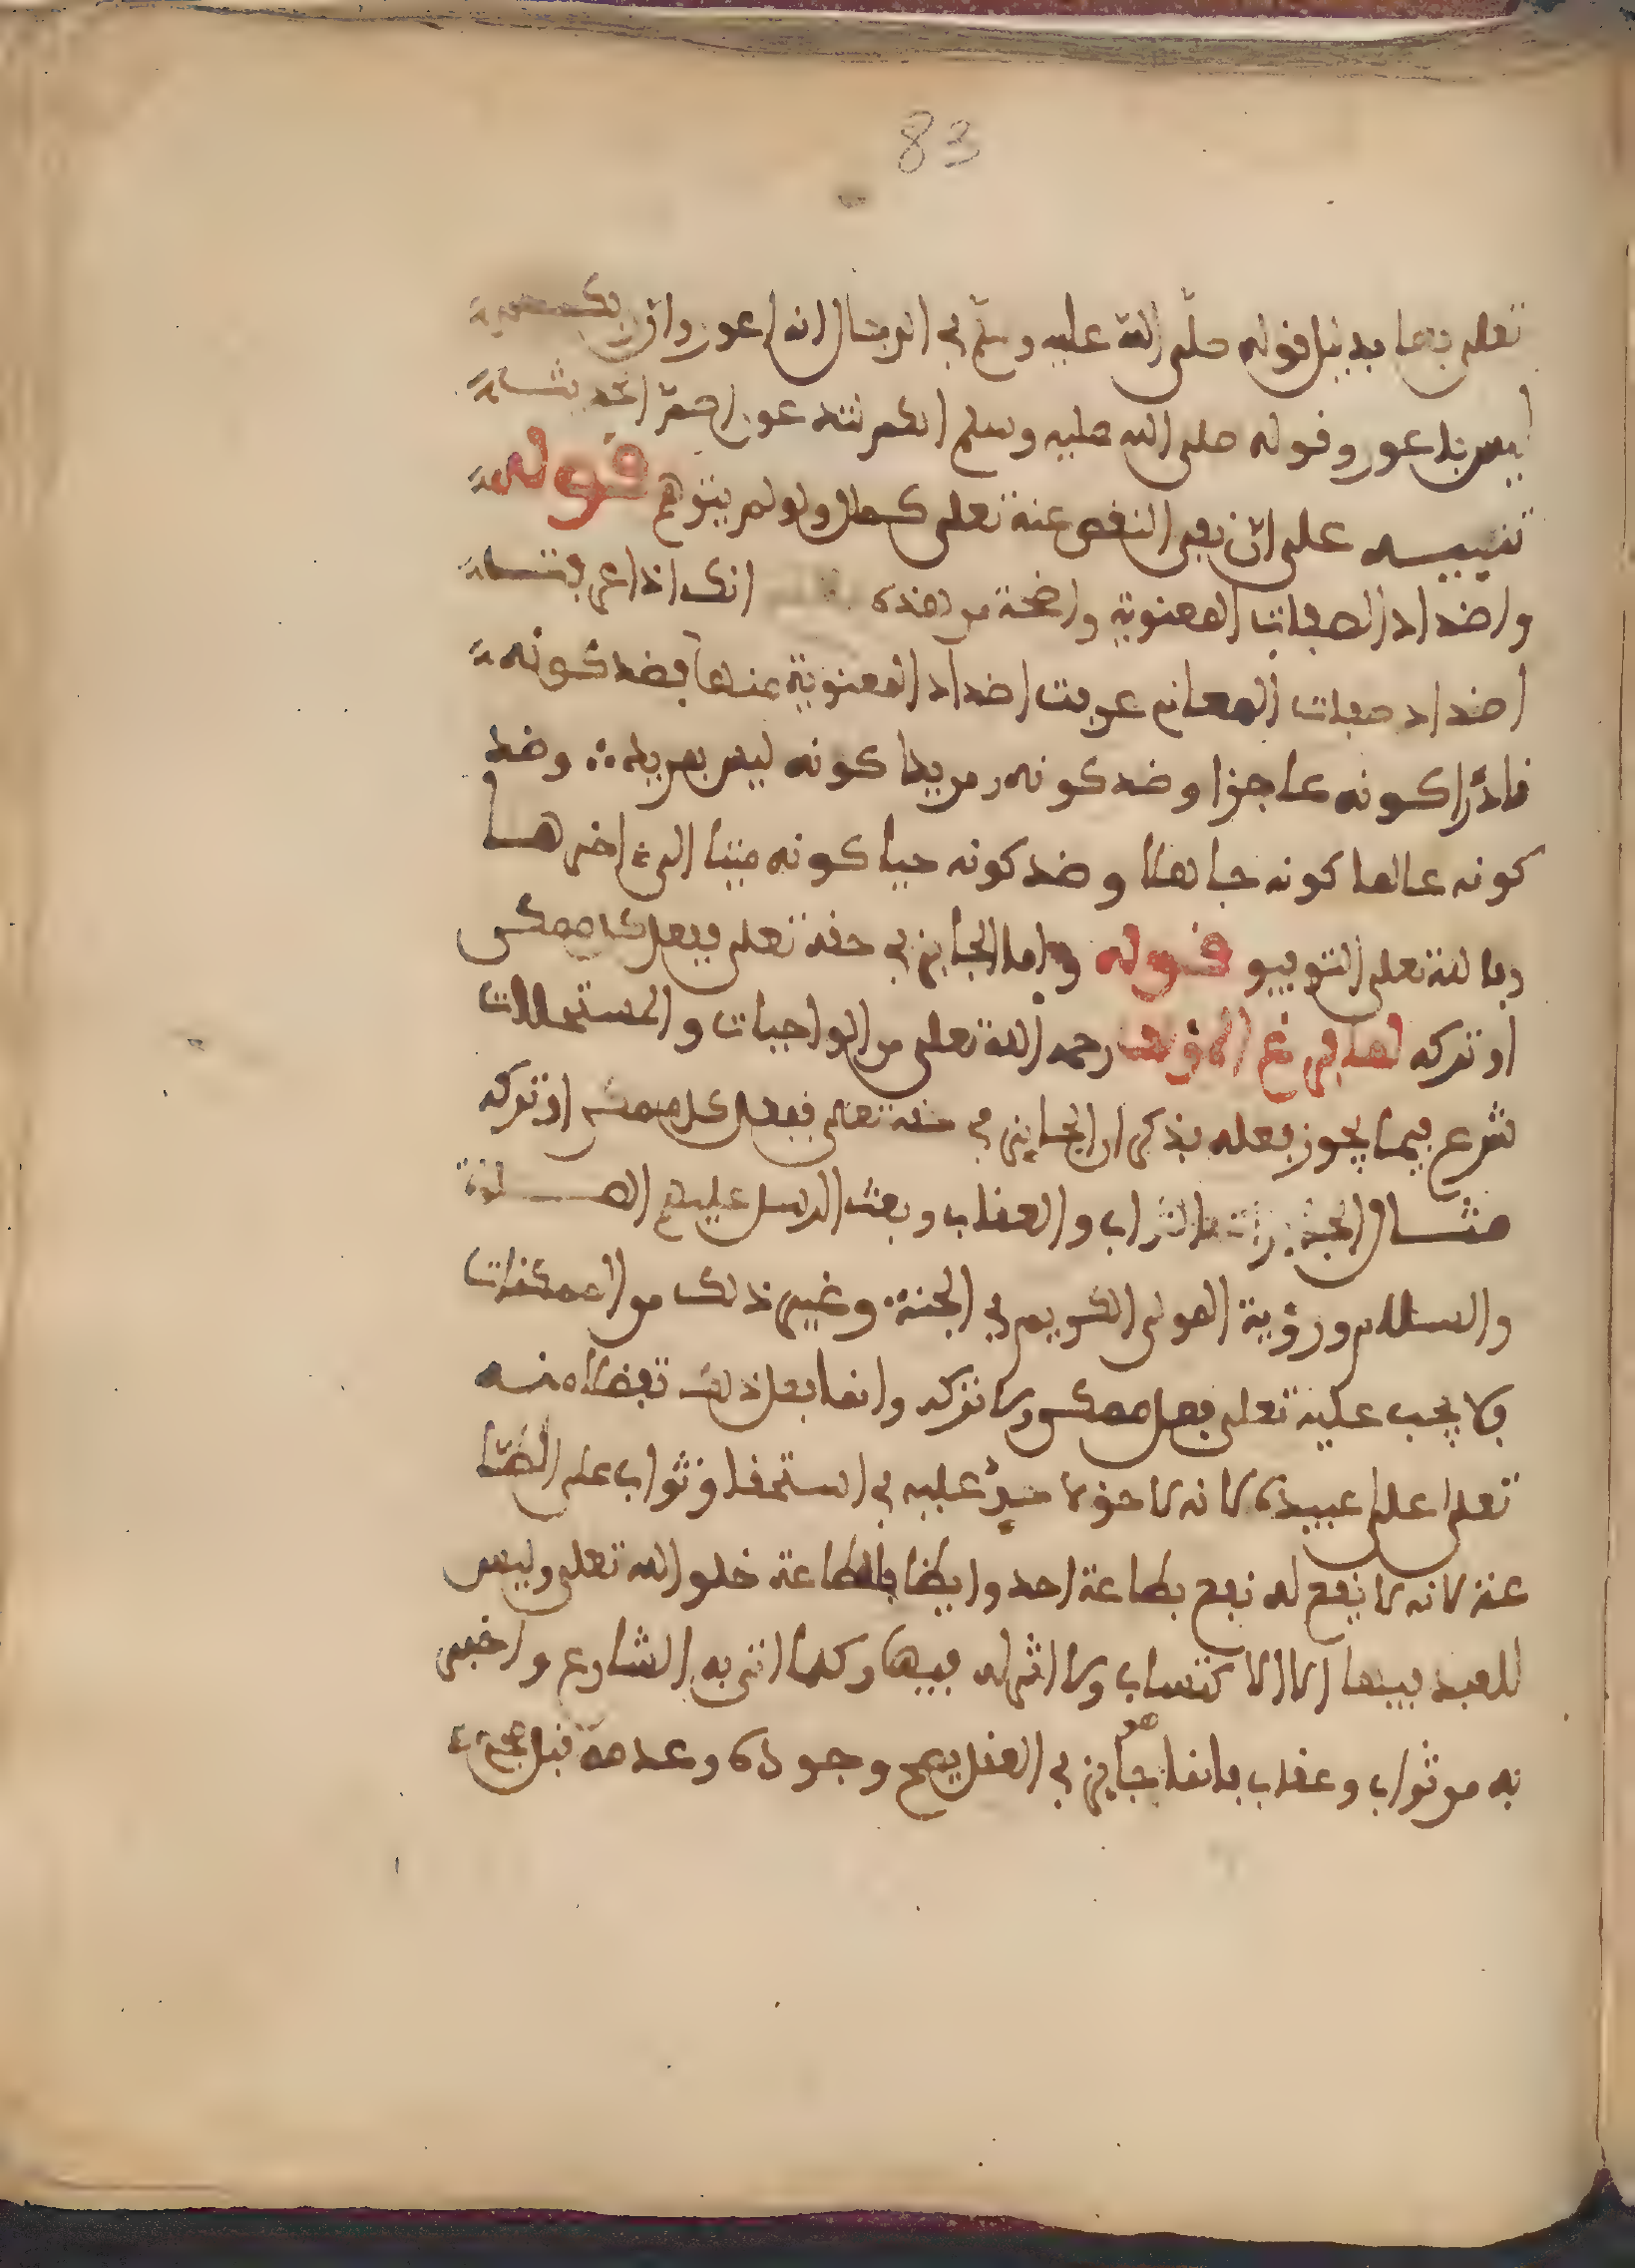 83
تعلى بها بدليل قوله صلى الله عليه وسلم في الدجال انه اعور وان ربكم
ليس باعور وقوله صلى الله عليه وسلم انكم لا تدعون اصم الحديث
تنبيه على ان نفي النقص عنه تعلى كمال ولو لم يتوهم قوله
واضداد الصفات المعنوية واضحة من هذه انك اذا عرفت
اضداد صفات المعاني عرفت اضداد المعنوية منها فضد كونه
قادرا كونه عاجزا وضد كونه مريدا كونه ليس بمريد وضد
كونه عالما كونه جاهلا وضد كونه حيا كونه ميتا الى اخرها
وبالله تعلى التوفيق قوله واما الجايز في حقه تعلى ففعل كل ممكن
او تركه لما فرغ المؤلف رحمه الله تعلى من الواجبات والمستحيلات
شرع فيما يجوز فعله فذكر ان الجايز في حقه تعالى ففعل كل ممكن او تركه
مثال الثواب والعقاب وبعث الرسل عليهم الصلوة
والسلام ورؤية المولى الكريم في الجنة وغير ذلك من الممكنات
فلا يجب عليه تعلى فعل ممكن ولا تركه وانما فعل ذلك تفضلا منه
تعلى على عبيده لانه لا حق لاحد عليه في استحقاق ثواب على الطا
عة لانه لا نفع له نفع بطاعة احد وايضا فالطاعة خلق الله تعلى وليس
للعبد فيها الا الاكتساب ولا اثر له فيها وكلما اتى به الشارع واخبر
به من ثواب وعقاب فانما هو جايز في العقل يصح وجوده وعدمه قبل مجيء